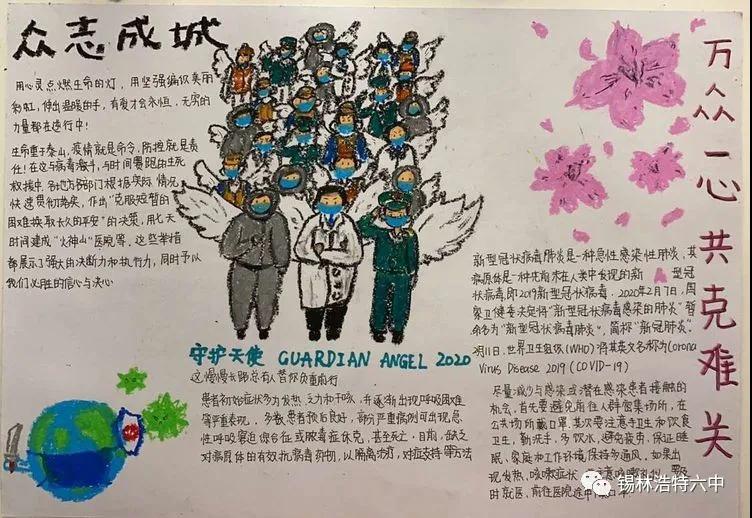 众志成城
用心灵点燃生命的灯,用坚强编织美丽
彩虹,伸出温暖的手,有爱才会永恒,无穷的
力量都在进行中!
生命重于泰山,疫情就是命令,防控就是责
任!在这与病毒激斗,与时间赛跑的生死
救援中,各地方各部门根据实际情况
快速贯彻落实,作出“克服短暂的
困难换取长久的平安”的决策,用七天
时间建成“火神山”医院等,这些举措
都展示了强大的决断力和执行力,同时予以
我们必胜的信心与决心
守护天使 GUARDIAN ANGEL 2020
这漫漫长路总有人替你负重前行
患者初始症状多为发热、乏力和干咳,并逐渐出现呼吸困难
等严重表现,多数患者预后良好,部分严重病例可出现急
性呼吸窘迫综合征或脓毒症休克,甚至死亡.目前,缺乏
对病原体的有效抗病毒药物,以隔离治疗,对症支持等方法
万众一心共克难关
新型冠状病毒肺炎是一种急性感染性肺炎,其
病原体是一种先前未在人类中发现的新型冠
状病毒,即2019新型冠状病毒.2020年2月7日,国
家卫健委决定将“新型冠状病毒感染的肺炎”暂
命名为“新型冠状病毒肺炎”,简称“新冠肺炎”.
2月11日,世界卫生组织(WHO)将其英文名称为Corona
Virus Disease 2019 (COVID-19)
尽量减少与感染或潜在感染患者接触的
机会,首先要避免前往人群密集场所,在
公共场所戴口罩,其次要注意手卫生和饮食
卫生,勤洗手,多饮水,避免疲劳,保证睡
眠,家庭和工作环境保持多通风,如果出
现发热,咳嗽症状
时就医,前往医院途中
锡林浩特六中